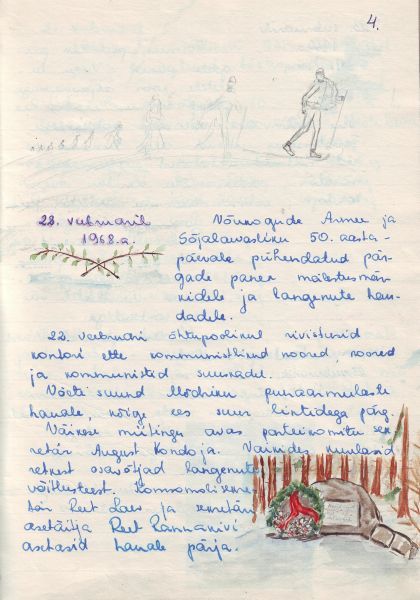 4.
22. veebruaril
1968. a.
Nõukogude Armee ja
Sõjalaevastiku 50. aasta-
päevale pühendatud pär-
gade panek mälestusmär-
kidele ja langenute hau-
dadele.
22. veebruari õhtupoolikul rivistusid
kontori ette kommunistlikud noored, noored
ja kommunistid suuskadel.
Võeti suund Mõdriku punaarmeelaste
hauale, kõige ees suur lintidega pärg.
Väikese miitingu avas parteikomitee sek-
retär August Kondoja. Vaikides kuulasid
retkest osavõtjad langenute
võitlusteest. Komsomolisekre-
tär Peet Laes ja sekretäri
asetäitja Reet Rannakivi
asetasid hauale pärja.